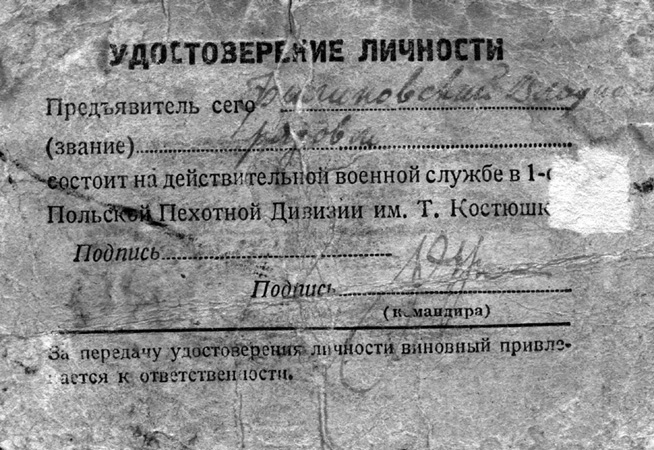 УДОСТОВЕРЕНИЕ ЛИЧНОСТИ
Предъявитель сего
(звание) рядовой
состоит на действительной военной службе в 1-о
Польской Пехотной Дивизии им. Т. Костюшк
Подпись
Подпись
(командира)
За передачу удостоверения личности виновный привле-
кается к ответственности.